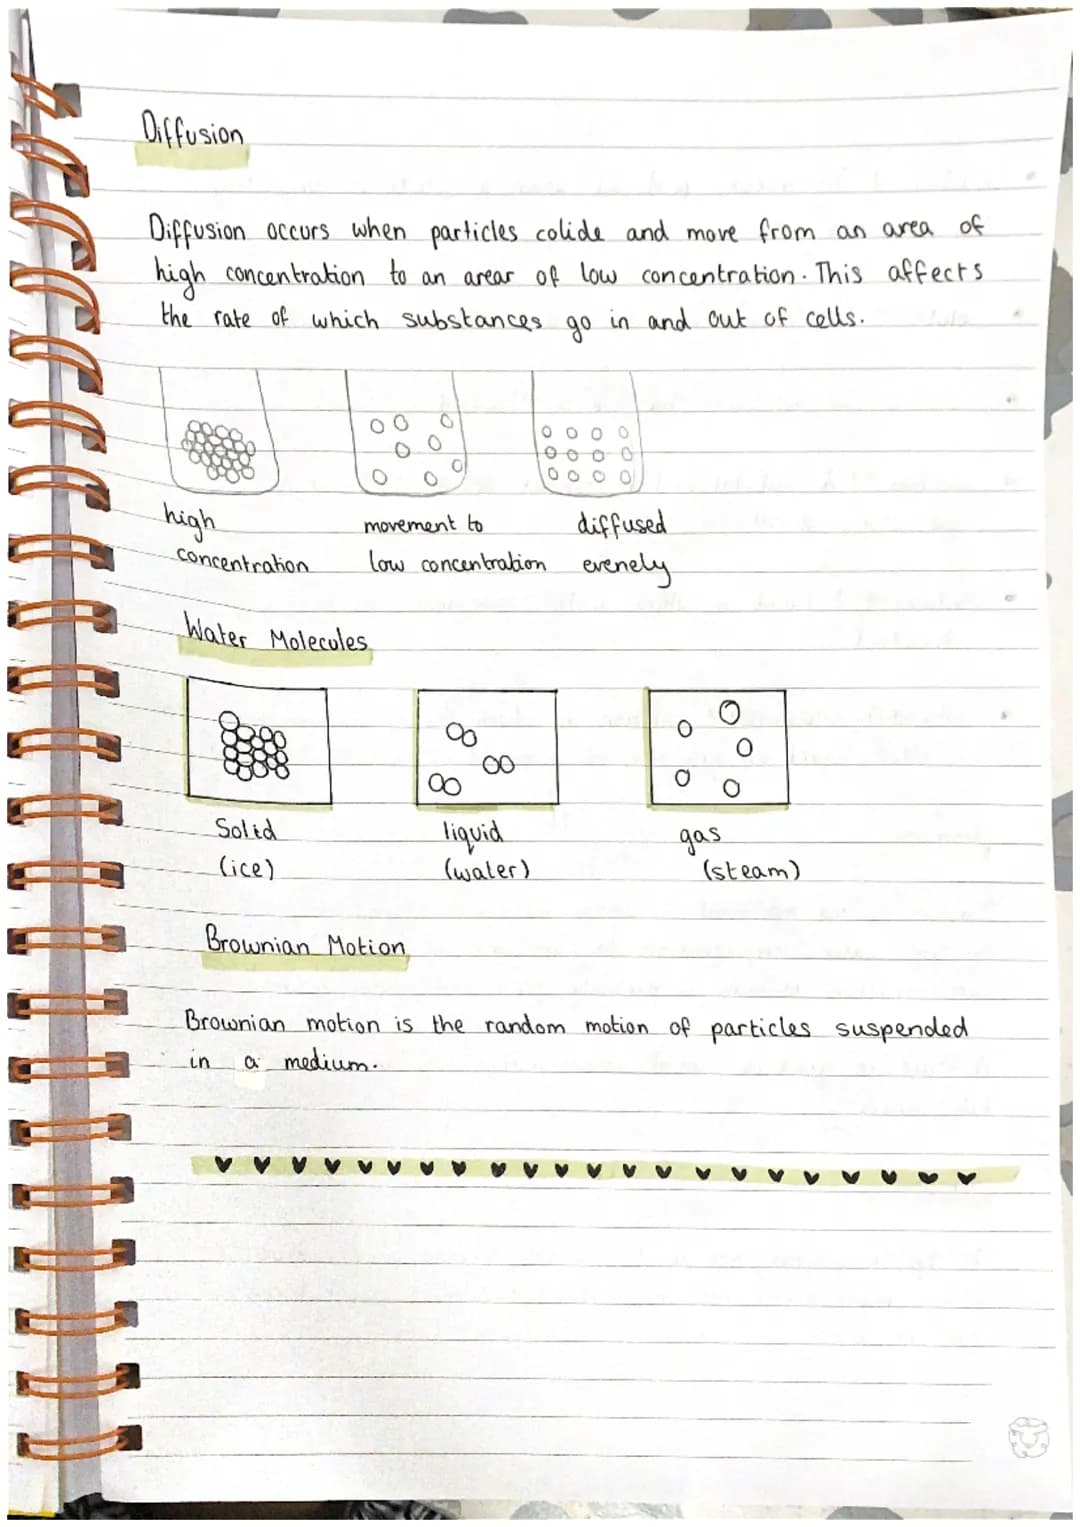 Diffusion
Diffusion occurs when particles colide and move from an area of
high concentration to an arear of low concentration. This affects
the rate of which substances go in and out of cells.
high movement to diffused
concentration low concentration evenely
Water Molecules
Solid liquid gas
(ice) (water) (steam)
Brownian Motion
Brownian motion is the random motion of particles suspended
in a medium.